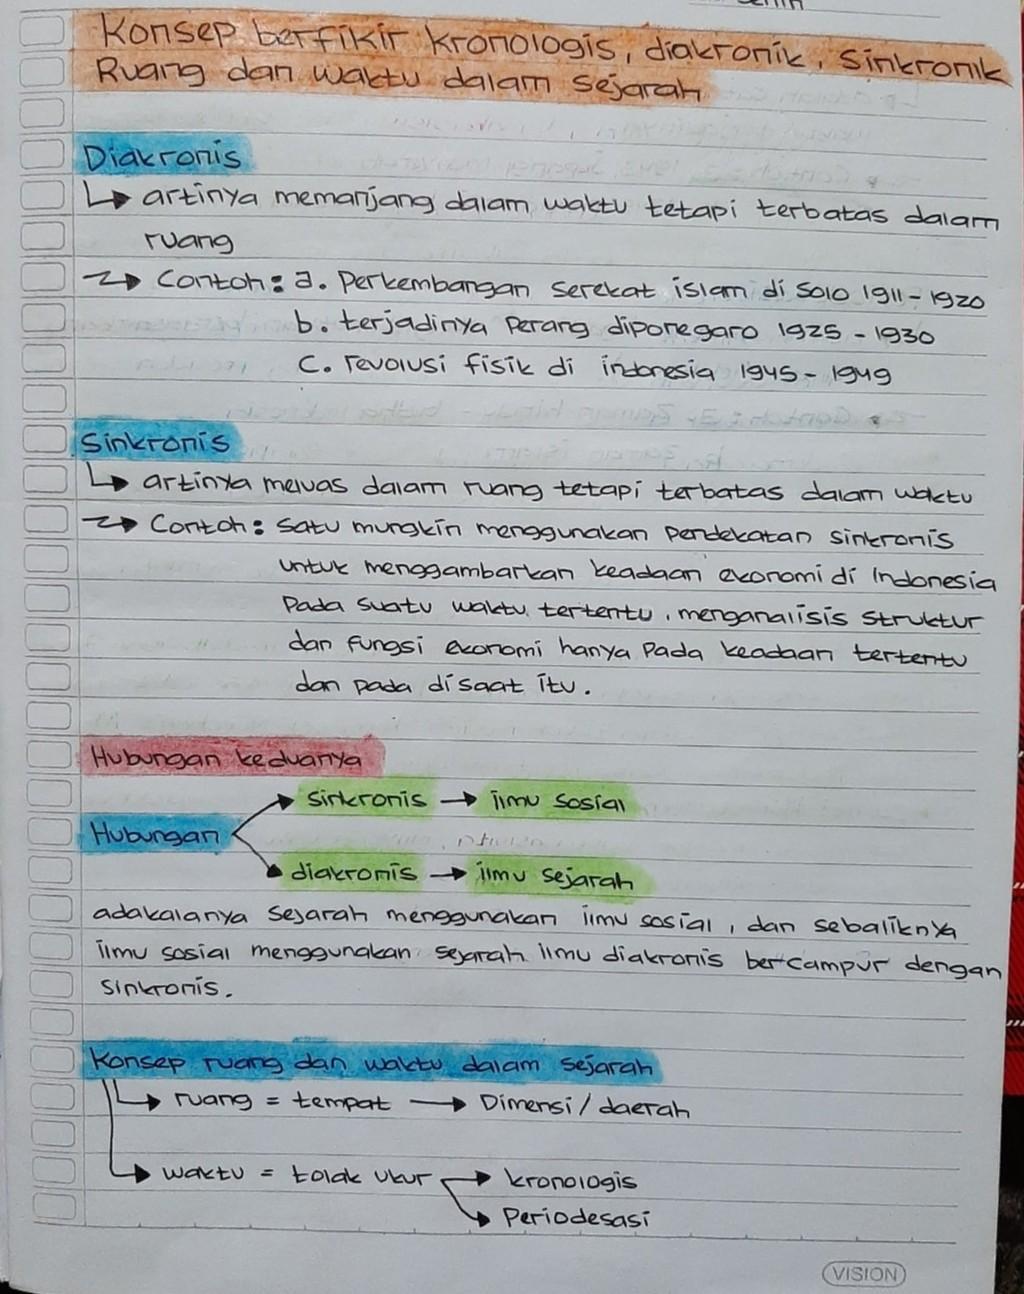 Konsep berfikir kronologis, diakronik, sinkronik
Ruang dan waktu dalam sejarah
Diakronis
↳ artinya memanjang dalam waktu tetapi terbatas dalam
ruang
→ Contoh : a. Perkembangan serekat islam di solo 1911 - 1920
b. terjadinya Perang diponegaro 1925 - 1930
c. revolusi fisik di indonesia 1945 - 1949
Sinkronis
↳ artinya meluas dalam ruang tetapi terbatas dalam waktu
→ Contoh : satu mungkin menggunakan pendekatan sinkronis
untuk menggambarkan keadaan ekonomi di Indonesia
Pada suatu waktu tertentu, menganalisis struktur
dan fungsi ekonomi hanya Pada keadaan tertentu
dan pada disaat itu.
Hubungan keduanya
sinkronis → ilmu sosial
Hubungan
diakronis → ilmu sejarah
adakalanya sejarah menggunakan ilmu sosial, dan sebaliknya
ilmu sosial menggunakan sejarah ilmu diakronis bercampur dengan
sinkronis.
Konsep ruang dan waktu dalam sejarah
↳ ruang = tempat → Dimensi / daerah
↳ waktu = tolak ukur → kronologis
→ Periodesasi
VISION